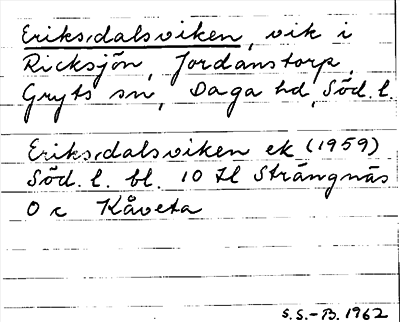 Eriksdalsviken, vik i
Ricksjön, Jordanstorp,
Gryts sn, Daga hd, Söd. l.
Eriksdalsviken ek (1959)
Söd. l. bl. 10 Strängnäs
O c Kåveta
S.S.-B. 1962